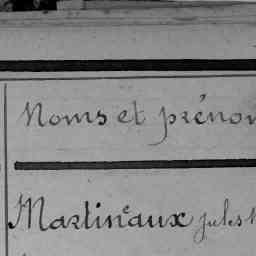 Noms et prénom
Martineaux jules